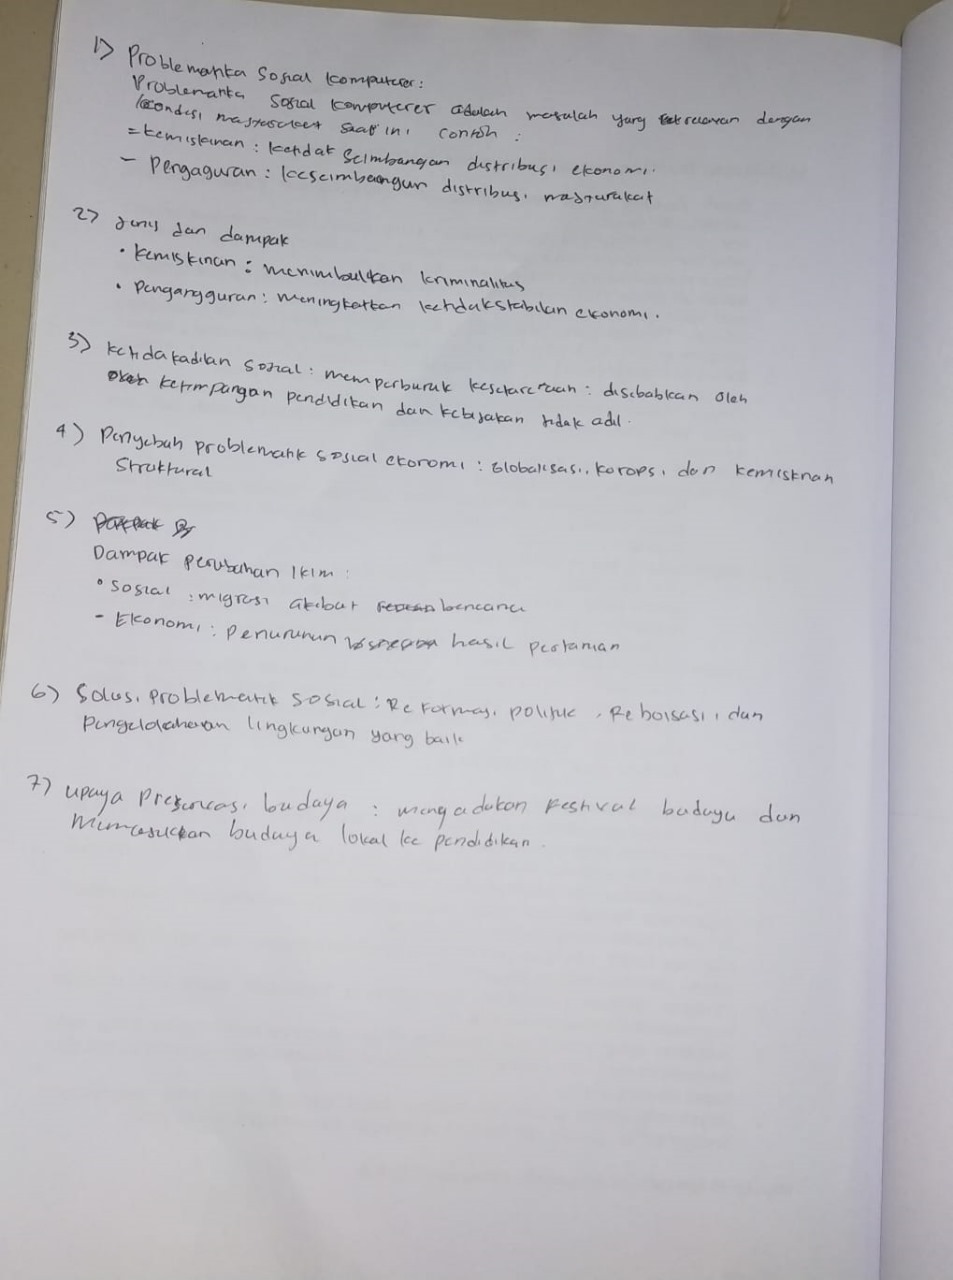 1) Problematika Sosial komputerer:
Problematika Sosial komputerer adalah masalah yang relevan dengan
kondisi masyarakat saat ini contoh :
- kemiskinan : ketidak seimbangan distribusi ekonomi.
- Pengaguran : keseimbangan distribusi masyarakat
2) Jenis dan dampak
• kemiskinan : menimbulkan kriminalitas
• Pengangguran : meningkatkan ketidakstabilan ekonomi.
3) ketidakadilan sosial : memperburuk kesetaraan : disebabkan oleh
ketimpangan pendidikan dan kebijakan tidak adil.
4) Penyebab problematik sosial ekonomi : Globalisasi, korupsi, dan kemiskinan
Struktural
5)
Dampak perubahan iklim :
• Sosial : migrasi akibat bencana
- Ekonomi : penurunan hasil pertanian
6) Solusi problematik sosial : Reformasi politik, Reboisasi, dan
pengelolahan lingkungan yang baik
7) upaya Preservasi budaya : mengadakan festival budaya dan
Memasukkan budaya lokal ke pendidikan.